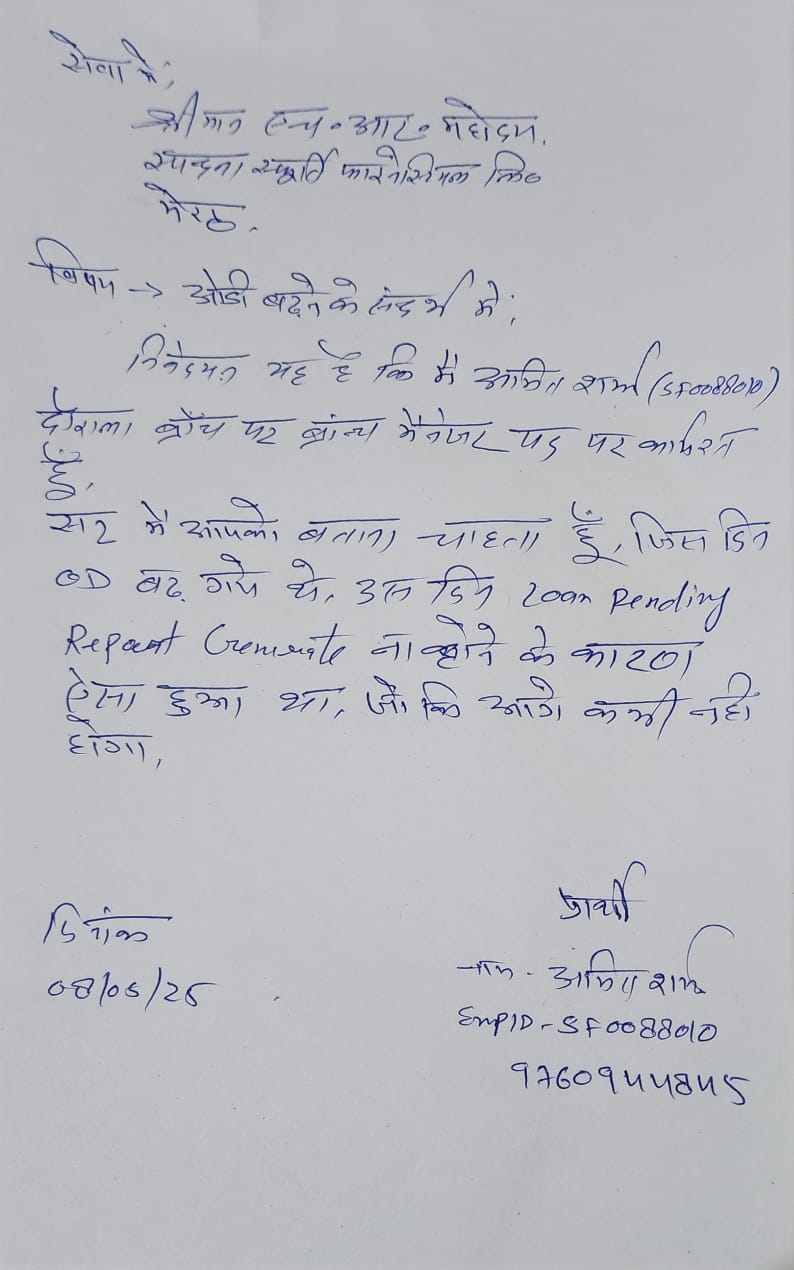 सेवा में,
श्रीमान एच०आर० महोदय,
स्पन्दना स्फूर्ति फाईनेंशियल लि०
मेरठ,
विषय → ओडी बढने के संदर्भ में,
निवेदन यह है कि मैं अमित शर्मा (SF0088010)
दौराला ब्रॉच पर ब्रांन्च मैनेजर पद पर कार्यरत
हूँ,
सर मैं आपको बताना चाहता हूँ, जिस दिन
OD बढ़ गये थे, उस दिन Loan Pending
Report Generate ना होने के कारण
ऐसा हुआ था, जो कि आगे कभी नही
होगा,
प्रार्थी
दिनांक
नाम - अमित शर्मा
08/05/25
EmpID - SF0088010
9760944845